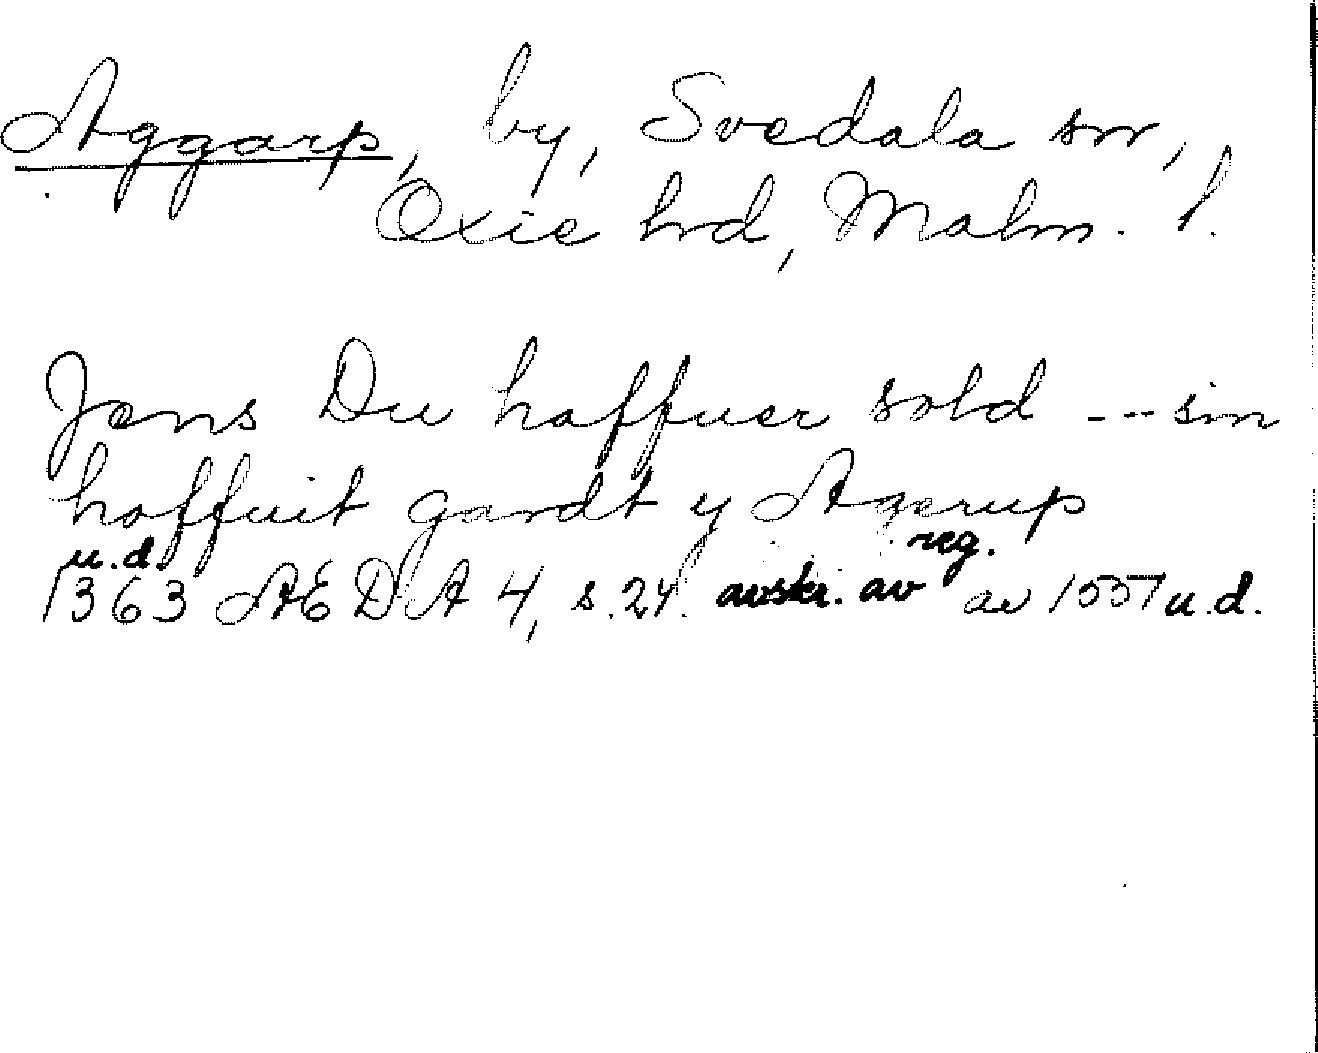 Aggarp, by, Svedala sn,
Oxie hd, Malm. l.
Jens Du haffuer sold --- sin
hoffuit gardt y Agerup
u.d. reg.
1363 ÆDA 4, s.24. avskr. av av 1557 u.d.